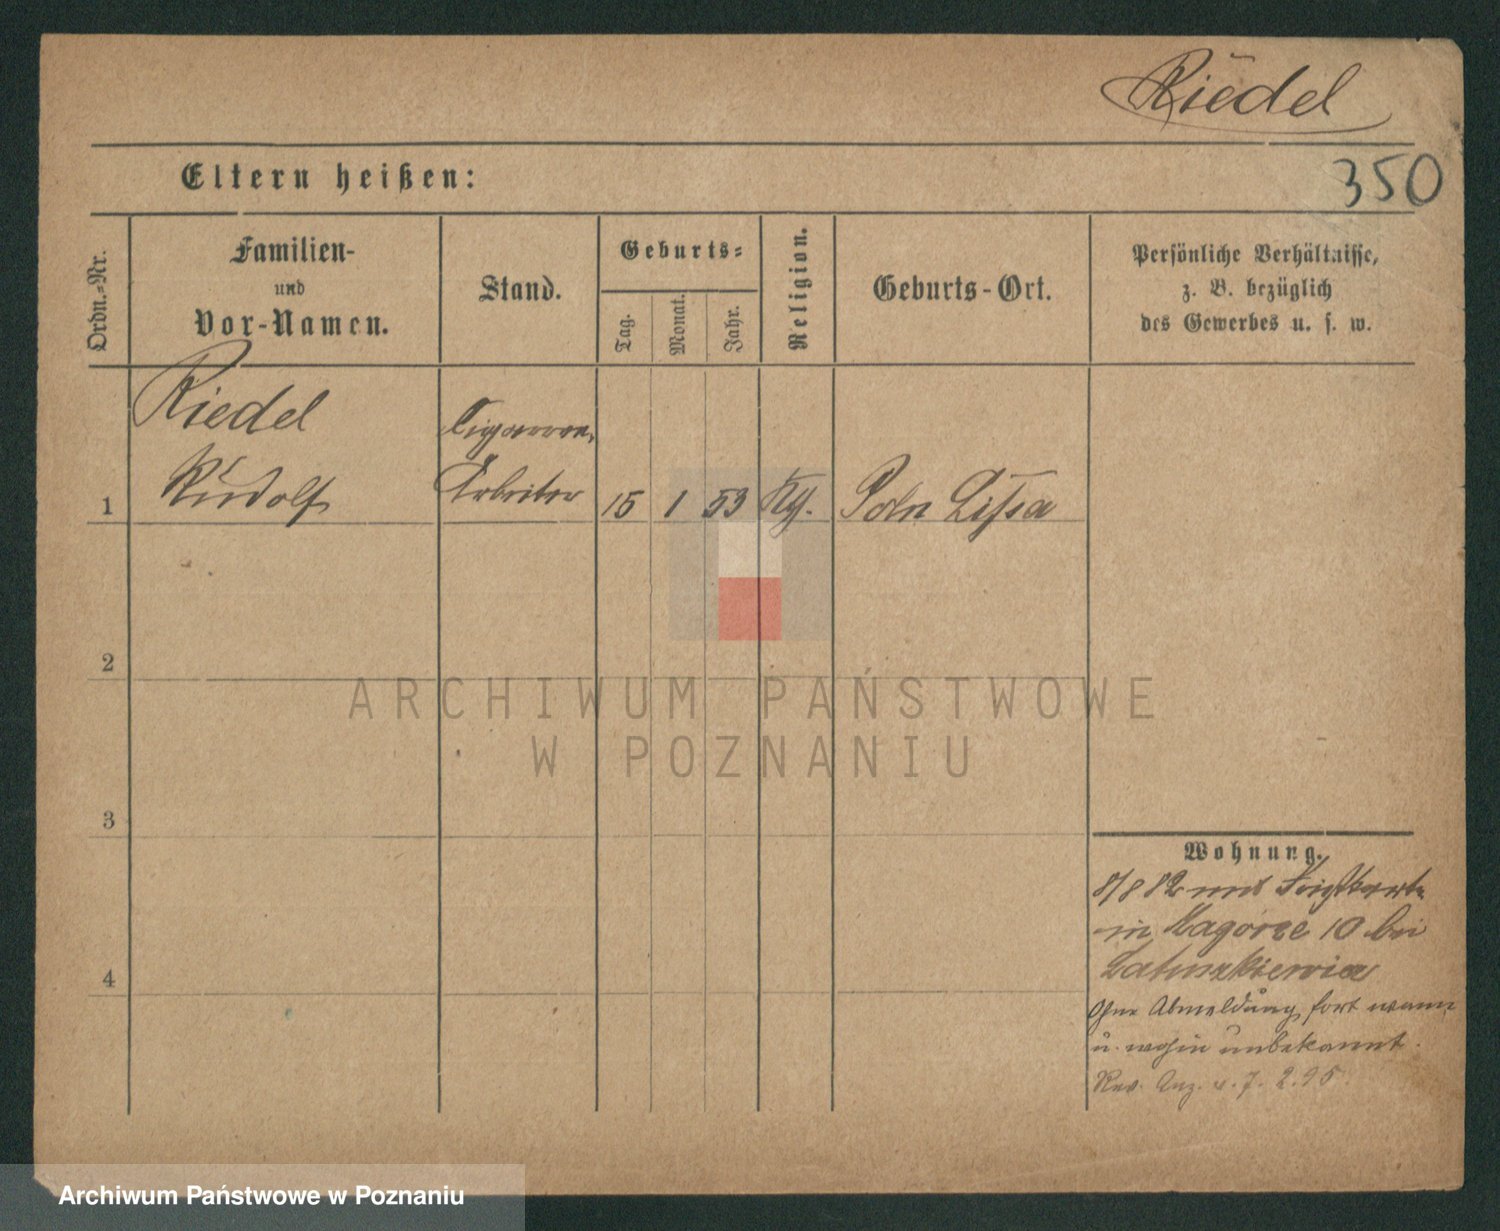 Riedel
350
Eltern heißen:
Ordn.-Nr.
Familien-
und
Vor-Namen.
Stand.
Geburts-
Tag.
Monat.
Jahr.
Religion.
Geburts-Ort.
Persönliche Verhältnisse,
z. B. bezüglich
des Gewerbes u. s. w.
Riedel
Cigarren-
1 Rudolf Arbeiter 15 1 53 Poln Lissa
2
ARCHIWUM PAŃSTWOWE
W POZNANIU
3
Wohnung.
8/8 82 mit
in Zagorze 10 bei
4
Ohne Abmeldung fort wann
u. wohin unbekannt.
Rev. Anz. v. 7. 2. 95
Archiwum Państwowe w Poznaniu